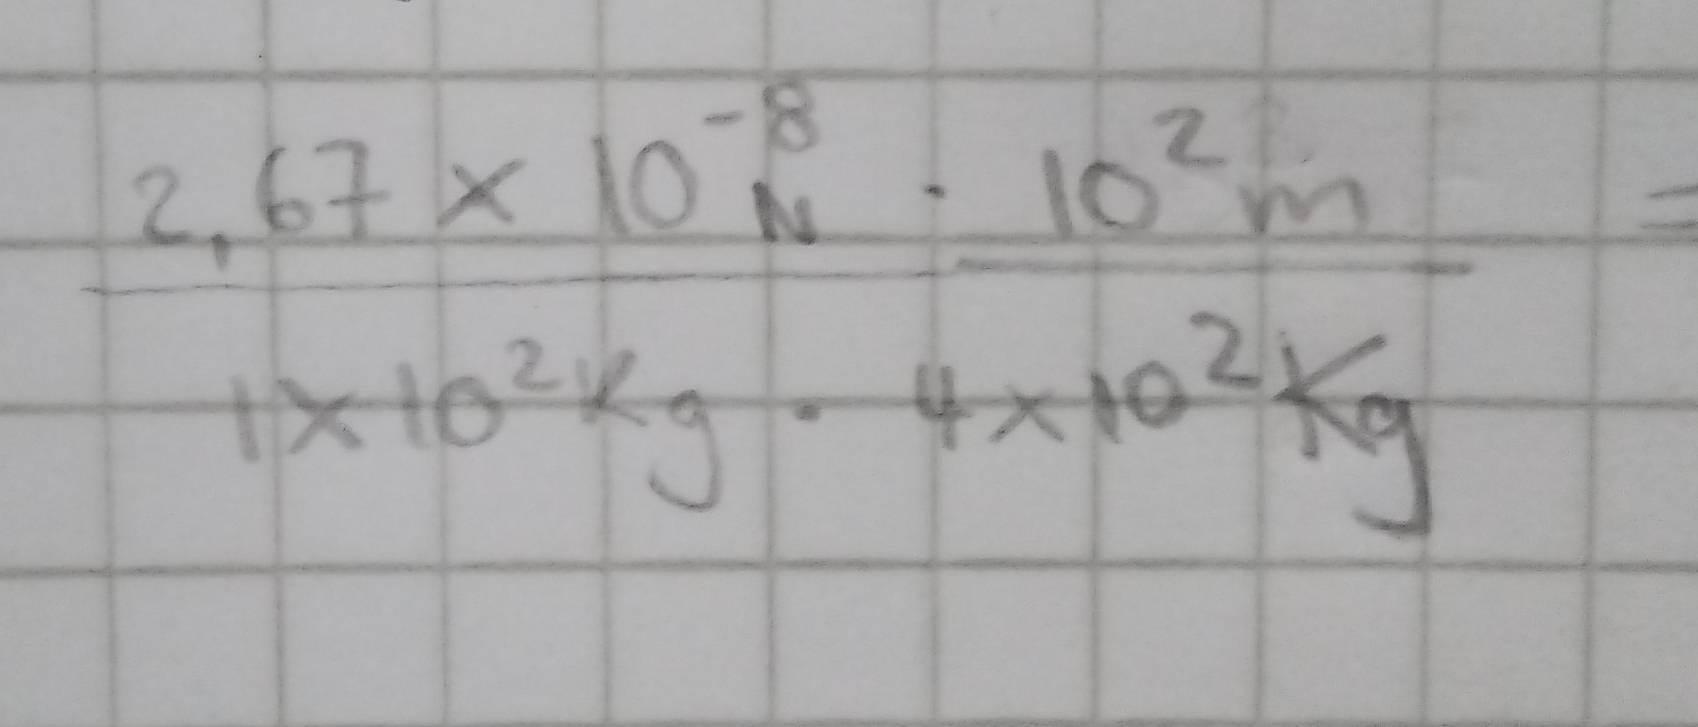 2,67 × 10⁻⁸ N · 10² m =
1 × 10² Kg · 4 × 10² Kg